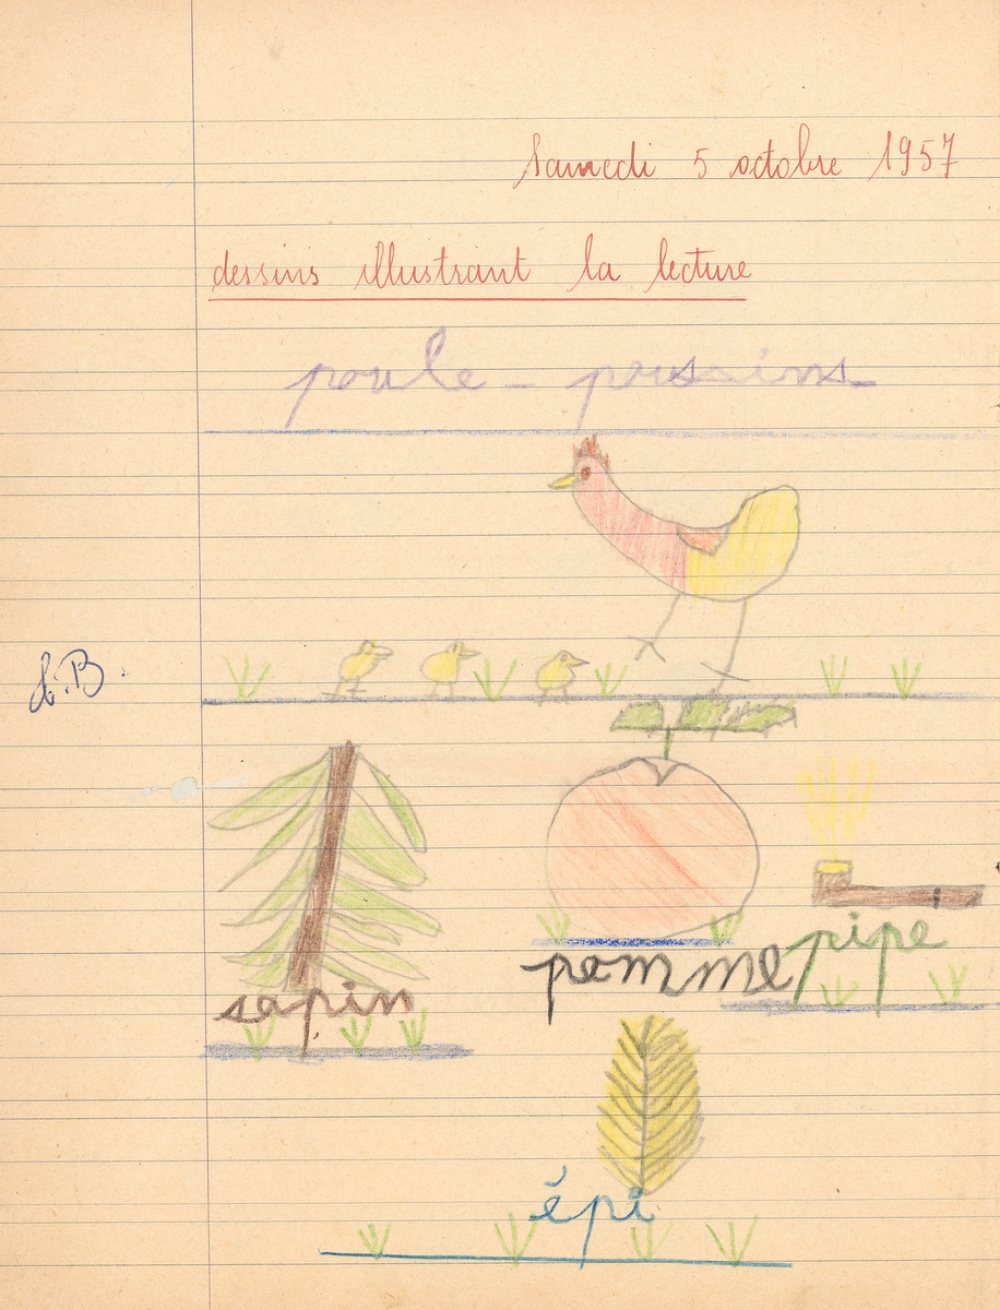 Samedi 5 octobre 1957
dessins illustrant la lecture
poule - poussins
B.
pomme
pipe
sapin
épi